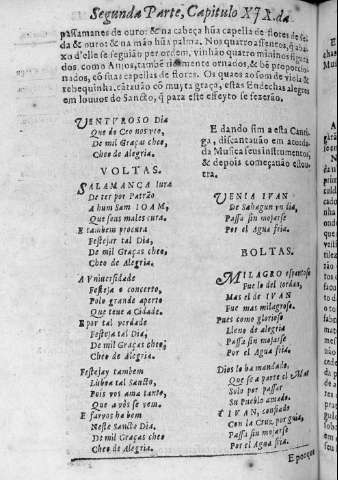 Segunda Parte, Capitulo XIX. da
passamanes de ouro: & na cabeça hũa capella de flores de se
da & ouro: & na mão hũa palma. Nos quatro assentos, q̃ aba
xo d'elle se seguião per ordem, vinhão quatro mininos
dos. como Anjos, tambẽ ricamente ornados, & bẽ proporcio
nados, cõ suas capellas de flores. Os quaes ao som de viola &
rebequinha, cãtauão cõ muyta graça, estas Endechas alegres
em louuor do Sancto, q̃ para este effeyto se fezerão.
VENTVROSO Dia
Que do Ceo nos veo,
De mil Graças cheo,
Cheo de Alegria.
VOLTAS.
SALAMANCA jura
De ter por Patrão
A hum Sam IOAM,
Que seus males cura.
E tambem procura
Festejar tal Dia,
De mil Graças cheo,
Cheo de Alegria.
A Vniuersidade
Festeja o concerto,
Polo grande aperto
Que teue a Cidade.
E por tal verdade
Festeja tal Dia,
De mil Graças cheo,
Cheo de Alegria.
Festejay tambem
Lisboa tal Sancto,
Pois vos ama tanto,
Que a vós se vem.
E fazvos ha bem
Neste Sancto Dia,
De mil Graças cheo
Cheo de Alegria.
E dando fim a esta Canti
ga, discantauão em acorda
da Musica seus instrumentos,
& depois começauão estou
tra.
VENIA IVAN
De Sahagun vn dia,
Passa sin mojarse
Por el Agua fria.
BOLTAS.
MILAGRO espantoso
Fue lo del Iordan,
Mas el de IVAN
Fue mas milagroso.
Pues como glorioso
Lleno de alegria
Passa sin mojarse
Por el Agua fria.
Dios lo ha mandado,
Que se a parte el Mar
Solo por passar
Su Pueblo amado.
E IVAN, confiado
Con la Cruz, por guia,
Passa sin mojarse
Por el Agua fria.
E poc